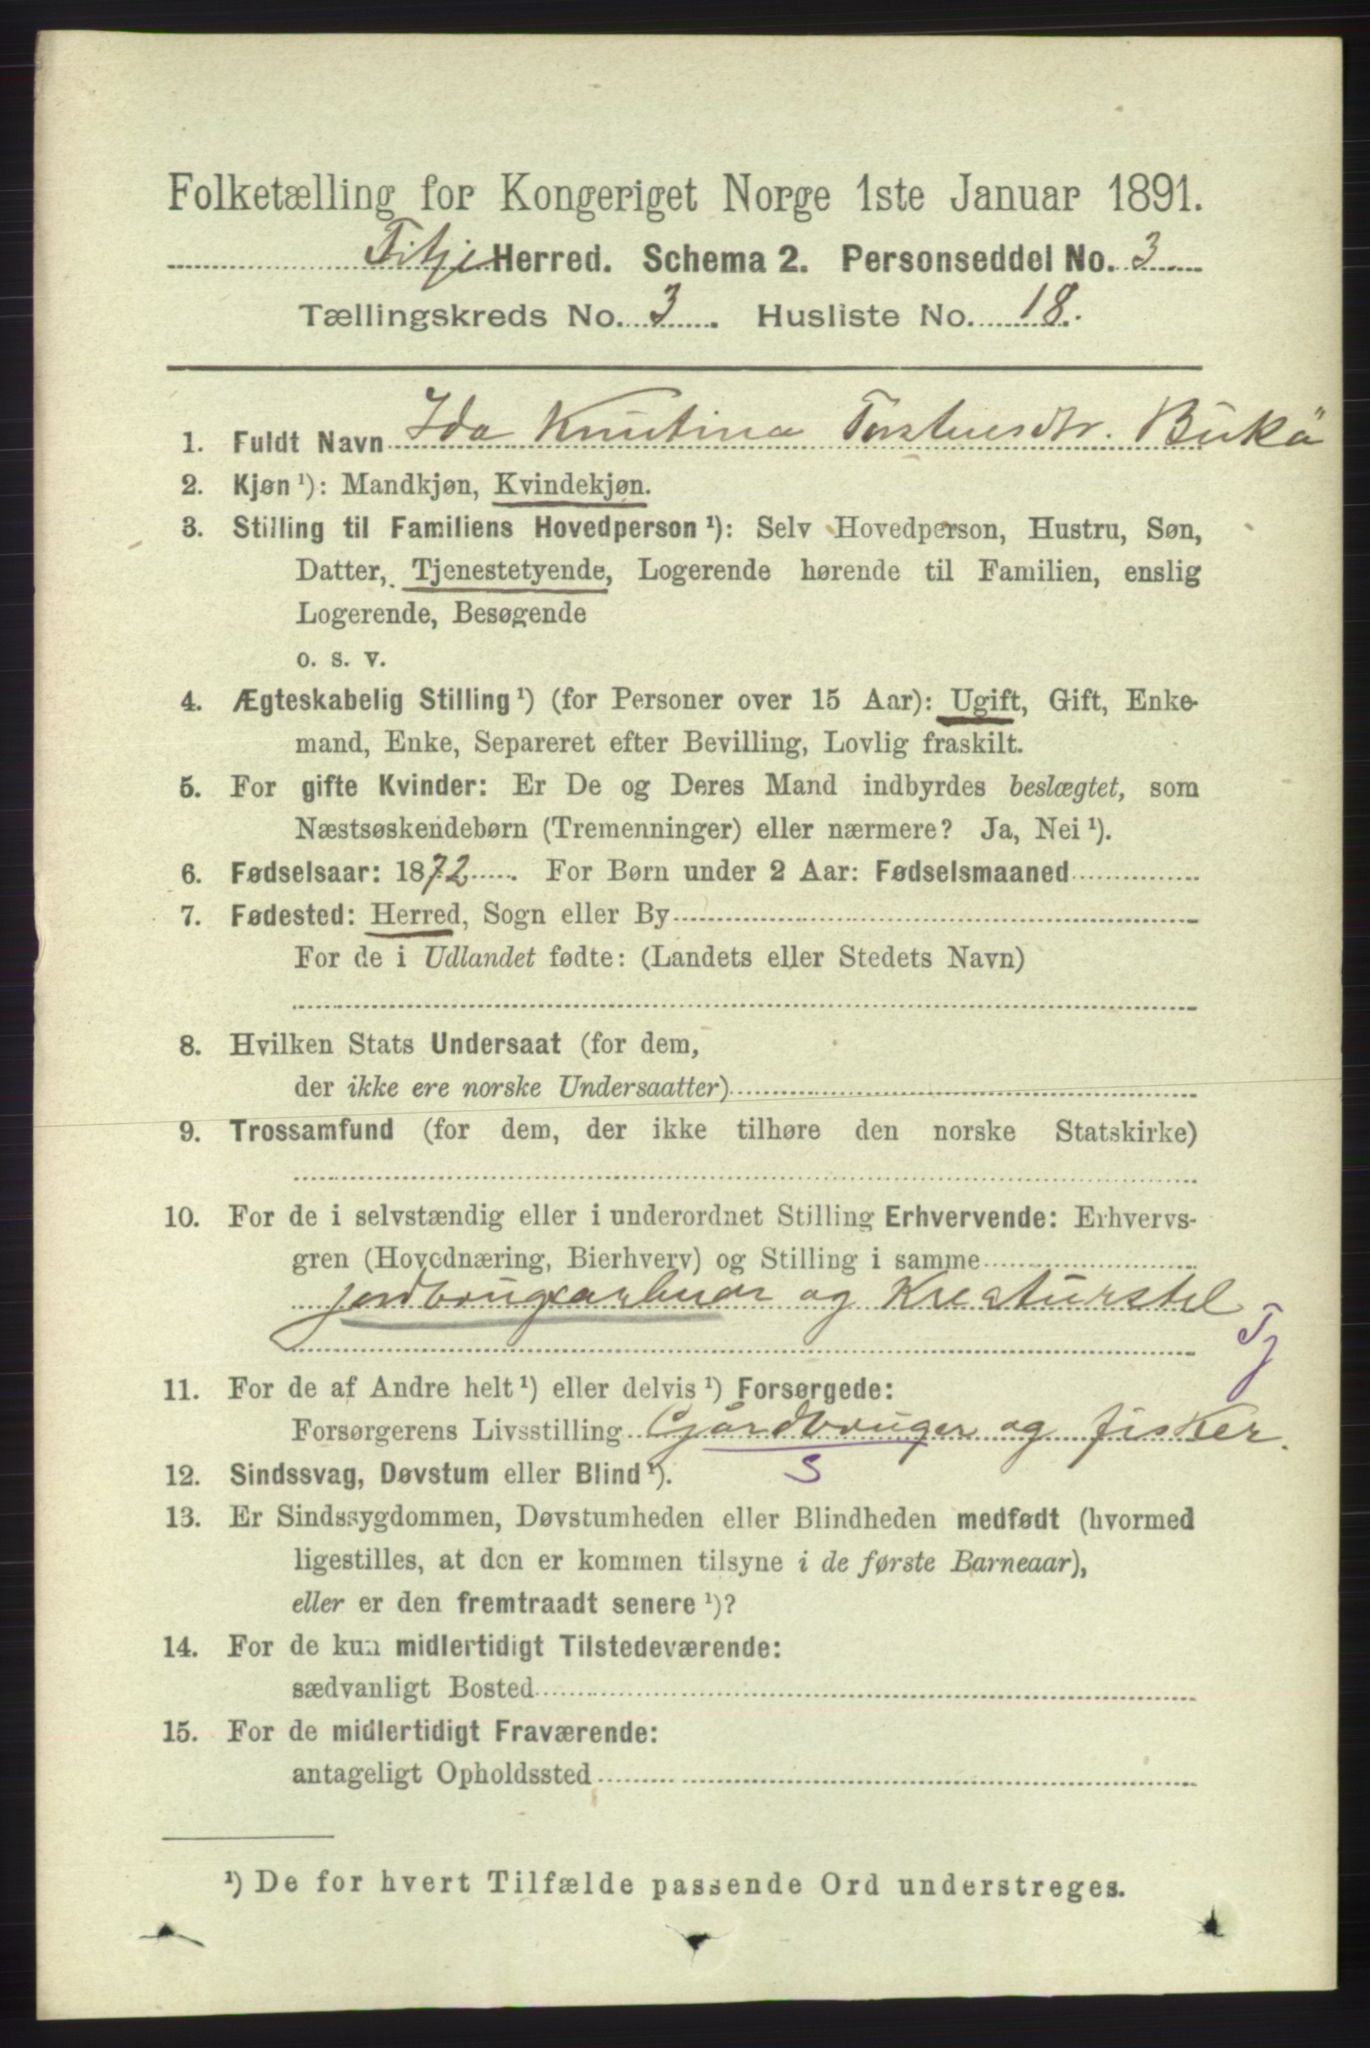 Folketælling for Kongeriget Norge 1ste Januar 1891.
Fitje Herred. Schema 2. Personseddel No. 3
Tællingskreds No. 3. Husliste No. 18.
1. Fuldt Navn Ida Kristina Torstensdtr. Bukö
2. Kjøn ¹): Mandkjøn, Kvindekjøn.
3. Stilling til Familiens Hovedperson ¹): Selv Hovedperson, Hustru, Søn,
Datter, Tjenestetyende, Logerende hørende til Familien, enslig
Logerende, Besøgende
o. s. v.
4. Ægteskabelig Stilling ¹) (for Personer over 15 Aar): Ugift, Gift, Enke-
mand, Enke, Separeret efter Bevilling, Lovlig fraskilt.
5. For gifte Kvinder: Er De og Deres Mand indbyrdes beslægtet, som
Næstsøskendebørn (Tremenninger) eller nærmere? Ja, Nei ¹).
6. Fødselsaar: 1872. For Børn under 2 Aar: Fødselsmaaned
7. Fødested: Herred, Sogn eller By
For de i Udlandet fødte: (Landets eller Stedets Navn)
8. Hvilken Stats Undersaat (for dem,
der ikke ere norske Undersaatter)
9. Trossamfund (for dem, der ikke tilhøre den norske Statskirke)
10. For de i selvstændig eller i underordnet Stilling Erhvervende: Erhvervs-
gren (Hovednæring, Bierhverv) og Stilling i samme
jordbrugsarbeider og Kreaturstel
Tj
11. For de af Andre helt ¹) eller delvis ¹) Forsørgede:
Forsørgerens Livsstilling Gårdbruger og fisker.
S
12. Sindssvag, Døvstum eller Blind ¹).
13. Er Sindssygdommen, Døvstumheden eller Blindheden medfødt (hvormed
ligestilles, at den er kommen tilsyne i de første Barneaar),
eller er den fremtraadt senere ¹)?
14. For de kun midlertidigt Tilstedeværende:
sædvanligt Bosted
15. For de midlertidigt Fraværende:
antageligt Opholdssted
¹) De for hvert Tilfælde passende Ord understreges.